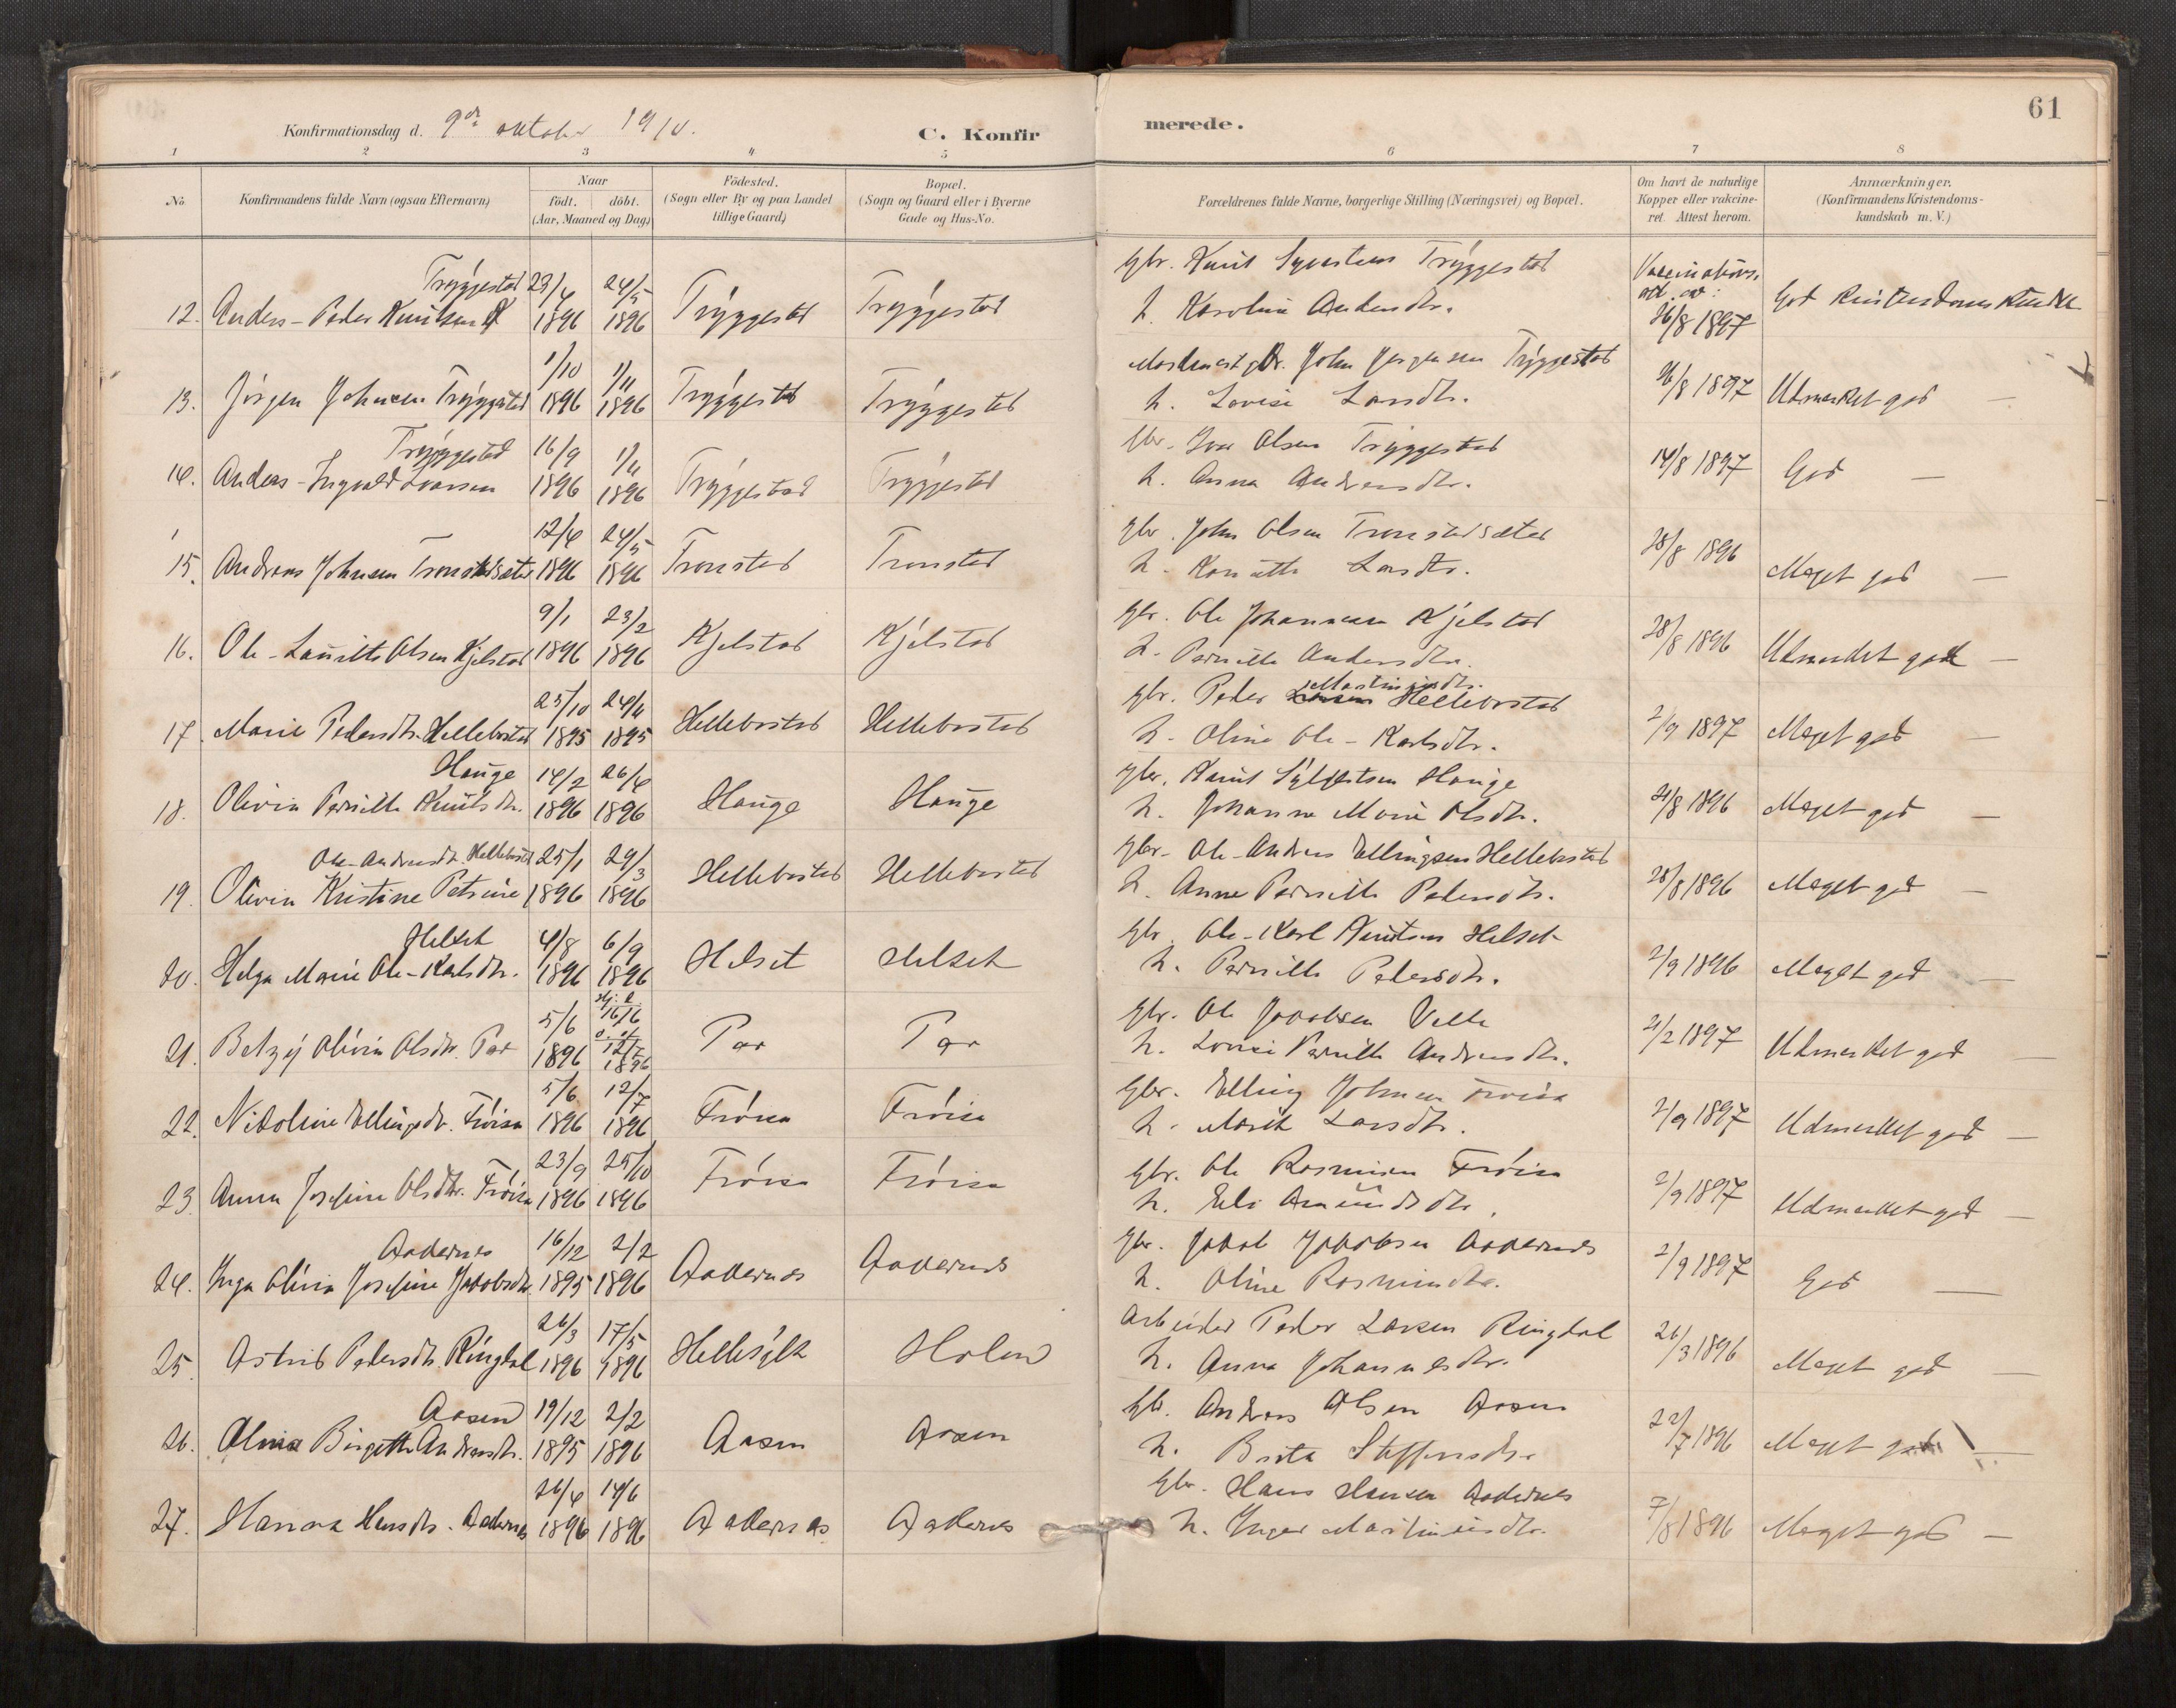 61
Konfirmationsdag d. 9de oktober 1910.
C. Konfirmerede.
1 2 3 4 5 6 7 8
No. Konfirmandens fulde Navn (ogsaa Efternavn) Naar födt. döbt. (Aar, Maaned og Dag) Födested. (Sogn eller By og paa Landet tillige Gaard) Bopæl. (Sogn og Gaard eller i Byerne Gade og Hus-No. Forældrenes fulde Navne, borgerlige Stilling (Næringsvei) og Bopæl. Om havt de naturlige Kopper eller vakcineret. Attest herom. Anmærkninger. (Konfirmandens Kristendomskundskab m. V.)
Tryggestad 23/4 24/5 Gbr. Knut Tryggestad Vaccinations.
12. Anders-Peder Knutsen 1896 1896 Tryggestad Tryggestad h. Karoline Andersdtr. 26/8 1897 God
1/10 1/11 John Jørgensen Tryggestad
13. Jørgen Johnsen Tryggestad 1896 1896 Tryggestad Tryggestad h. Lovise Larsdtr. 26/8 1897 Udmerket god —
Tryggestad 16/9 1/11 Gbr. Ivar Olsen Tryggestad
14. Anders-Ingvald Ivarsen 1896 1896 Tryggestad Tryggestad h. Anna Andersdtr. 14/8 1897 God —
12/4 24/5 Gbr. John Olsen Tronstadsæter
15. Andreas Johnsen Tronstadsæter 1896 1896 Tronstad Tronstad h. Larsdtr. 28/8 1896 Meget god —
9/1 23/2 Gbr. Ole Johannesen Kjelstad
16. Ole-Laurits Olsen Kjelstad 1896 1896 Kjelstad Kjelstad h. Pernille Andersdtr. 28/8 1896 Udmerket god —
25/10 24/11 Gbr. Peder Hellebostad
17. Marie Pedersdtr. Hellebostad 1895 1895 Hellebostad Hellebostad h. Oline Ole-Karlsdtr. 2/9 1897 Meget god —
Hauge 14/2 26/4 Gbr. Knut Sylfestsen Hauge
18. Olivia Pernille Knutsdtr. 1896 1896 Hauge Hauge h. Johanne Marie Olsdtr. 21/8 1896 Meget god —
Ole-Andreasdtr. Hellebostad 25/1 29/3 Gbr. Ole-Andreas Ellingsen Hellebostad
19. Olivia Kristine Petrine 1896 1896 Hellebostad Hellebostad h. Anne Pernille Pedersdtr. 28/8 1896 Meget god —
Helset 4/8 6/9 Gbr. Ole-Karl Knutsen Helset
20. Helga Marie Ole-Karlsdtr. 1896 1896 Helset Helset h. Pernille Pedersdtr. 2/9 1896 Meget god —
5/6 Hj. d. 16/6 Gbr. Ole Jakobsen Velle
21. Betzy Olivia Olsdtr. 1896 12/7 1896 h. Lovise Pernille Andreasdtr. 21/2 1897 Udmerket god —
5/6 12/7 Gbr. Elling Johnsen Frøisa
22. Nikoline Ellingsdtr. Frøisa 1896 1896 Frøisa Frøisa h. Marit Larsdtr. 2/9 1897 Udmerket god —
23/9 25/10 Gbr. Ole Rasmusen Frøisa
23. Anna Josefine Olsdtr. Frøisa 1896 1896 Frøisa Frøisa h. Eli Amundsdtr. 2/9 1897 Udmerket god —
Aakernes 16/12 2/2 Gbr. Jakob Jakobsen Aakernes
24. Inga Olivia Josefine Jakobsdtr. 1895 1896 Aakernes Aakernes h. Oline Rasmusdtr. 2/9 1897 God —
26/3 17/5 Arbeider Peder Larsen Ringdal
25. Astrid Pedersdtr. Ringdal 1896 1896 Hellesylt Holen h. Anna Johannesdtr. 26/3 1896 Meget god —
Aasen 19/12 2/2 Gbr. Andreas Olsen Aasen
26. Birgitte Andreasdtr. 1895 1896 Aasen Aasen h. Brita Steffensdtr. 22/7 1896 Meget god —
26/4 14/6 Gbr. Hans Hansen Aakernes
27. Hanna Hansdtr. Aakernes 1896 1896 Aakernes Aakernes h. Inger Martinusdtr. 7/8 1896 Meget god —